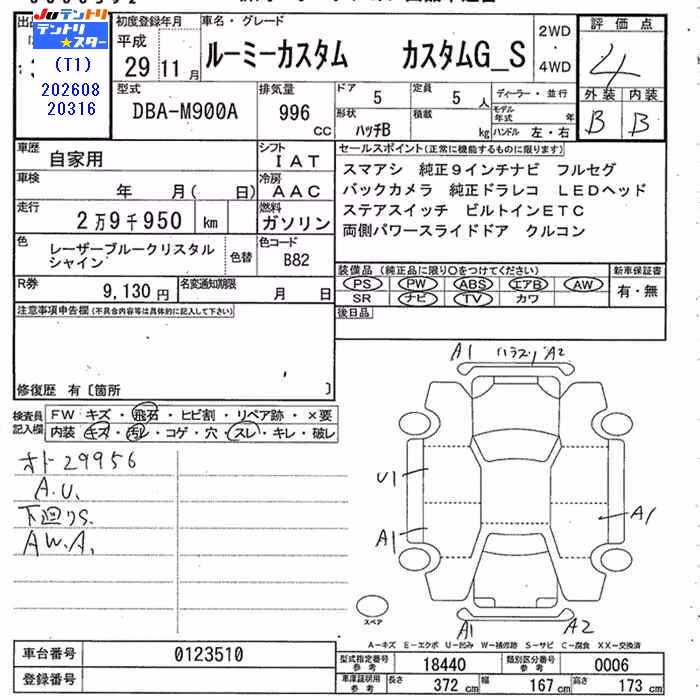 JU テントリ
テントリ★スター
(T1)
202608
20316
初度登録年月
平成
29 11月
車名・グレード
ルーミーカスタム カスタムG_S
2WD
・
4WD
評価点
4
外装 内装
B B
型式
DBA-M900A
排気量
996
CC
ドア
5
定員
5人
形状
ハッチB
積載
kg
ディーラー・並行
モデル年式 年
ハンドル 左・右
車歴
自家用
シフト
IAT
車検
年 月( 日)
冷房
AAC
走行
2万9千950 km
燃料
ガソリン
色
レーザーブルークリスタル
シャイン
色替
色コード
B82
R券
9,130円
名変通知期限
月 日
セールスポイント(正常に機能するものに限ります)
スマアシ 純正9インチナビ フルセグ
バックカメラ 純正ドラレコ LEDヘッド
ステアスイッチ ビルトインETC
両側パワースライドドア クルコン
装備品(純正品に限り○をつけてください)
PS PW ABS エアB AW
SR ナビ TV カワ
新車保証書
有・無
後日品
注意事項申告欄(不具合内容等は具体的に記入して下さい)
修復歴 有〔箇所 〕
検査員記入欄
FW キズ・飛石・ヒビ割・リペア跡・×要
内装 キズ・汚レ・コゲ・穴・スレ・キレ・破レ
オド29956
A.U.
下廻りS.
A.W.A.
A1 バラスリ A2
U1
A1
A1
A1 A2
スペア
A−キズ E−エクボ U−凹み W−補修跡 S−サビ C−腐食 XX−交換済
車台番号 0123510
登録番号
型式指定番号
参考
18440
類別区分番号
参考
0006
車庫証明用
参考
長さ 372cm 幅 167cm 高さ 173cm